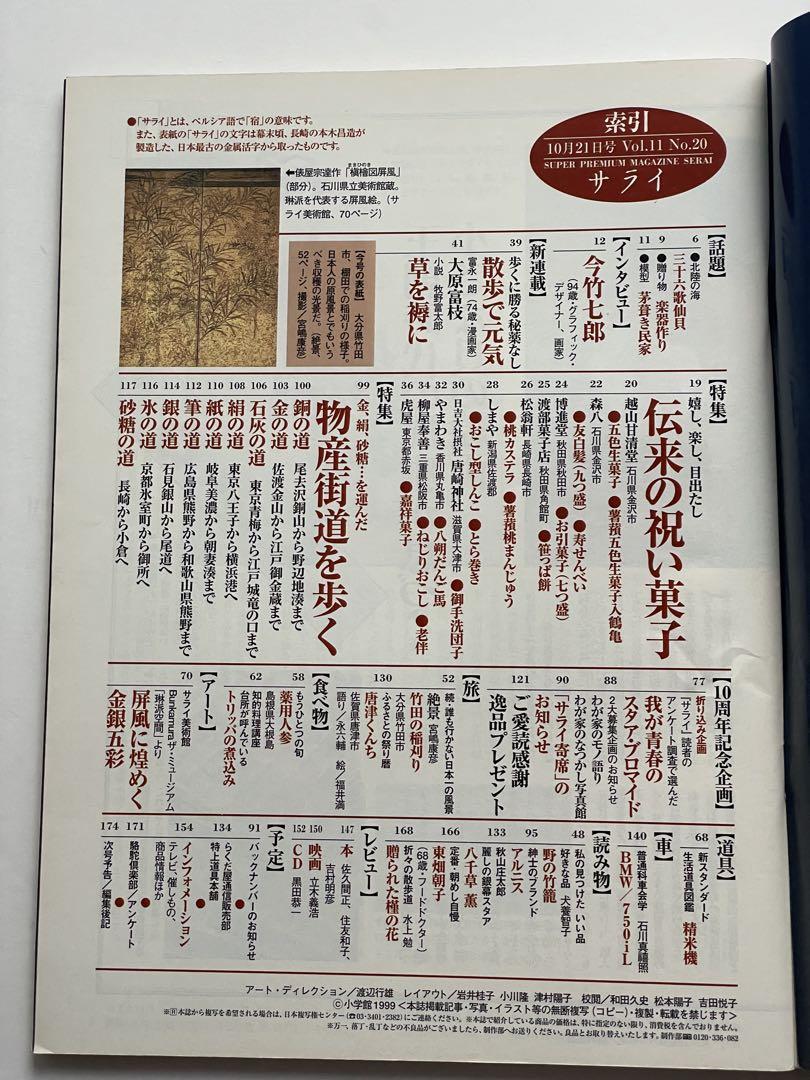 ●「サライ」とは、ペルシア語で「宿」の意味です。
また、表紙の「サライ」の文字は幕末頃、長崎の本木昌造が
製造した、日本最古の金属活字から取ったものです。
索引
10月21日号 Vol.11 No.20
SUPER PREMIUM MAGAZINE SERAI
サライ
←俵屋宗達作「槇檜図屏風」
まきひのき
(部分)。石川県立美術館蔵。
琳派を代表する屏風絵。(サ
ライ美術館、70ページ)
【今号の表紙】 大分県竹田
市、棚田での稲刈りの様子。
日本人の原風景とでもいう
べき収穫の光景だ。(絶景、
52ページ、撮影/宮嶋康彦)
【話題】
6 ●北陸の海
三十六歌仙貝
9 ●贈り物 楽器作り
11 ●模型 茅葺き民家
【インタビュー】
12 今竹七郎
(94歳・グラフィック・
デザイナー、画家)
【新連載】
39 歩くに勝る秘薬なし
散歩で元気
富永一朗(74歳・漫画家)
41 大原富枝
草を褥に
小説 牧野富太郎
【特集】
19 嬉し、楽し、目出たし
伝来の祝い菓子
20 越山甘清堂 石川県金沢市
●五色生菓子 ●薯蕷五色生菓子入鶴亀
22 森八 石川県金沢市
●友白髪(九つ盛) ●寿せんべい
24 博進堂 秋田県秋田市 ●お引菓子(七つ盛)
25 渡部菓子店 秋田県角館町 ●笹っぱ餅
26 松翁軒 長崎県長崎市
●桃カステラ ●薯蕷桃まんじゅう
28 しまや 新潟県佐渡郡
●おこし型しんこ ●とら巻き
30 日吉大社摂社 唐崎神社 滋賀県大津市 ●御手洗団子
32 やまわき 香川県丸亀市 ●八朔だんご馬
34 柳屋奉善 三重県松阪市 ●ねじりおこし ●老伴
36 虎屋 東京都赤坂 ●嘉祥菓子
【特集】
99 金、絹、砂糖…を運んだ
物産街道を歩く
100 銅の道 尾去沢銅山から野辺地湊まで
103 金の道 佐渡金山から江戸御金蔵まで
106 石灰の道 東京青梅から江戸城竜の口まで
108 絹の道 東京八王子から横浜港へ
110 紙の道 岐阜美濃から朝妻湊まで
112 筆の道 広島県熊野から和歌山県熊野まで
114 銀の道 石見銀山から尾道へ
116 氷の道 京都氷室町から御所へ
117 砂糖の道 長崎から小倉へ
【10周年記念企画】
77 折り込み企画
「サライ」読者の
アンケート調査で選んだ
我が青春の
スタア・ブロマイド
88 2大募集企画のお知らせ
わが家のモノ語り
わが家のなつかし写真館
90 「サライ寄席」の
お知らせ
121 ご愛読感謝
逸品プレゼント
【旅】
52 続・誰も行かない日本一の風景
絶景 宮嶋康彦
竹田の稲刈り
大分県竹田市
130 ふるさとの祭り暦
唐津くんち
佐賀県唐津市
語り/永六輔 絵/福井満
【食べ物】
58 もうひとつの旬
薬用人参
島根県大根島
62 知的料理講座
台所が呼んでいる
トリッパの煮込み
【アート】
70 サライ美術館
Bunkamuraザ・ミュージアム
「琳派空間」より
屏風に煌めく
金銀五彩
【道具】
68 新スタンダード
生活道具図鑑 精米機
【車】
140 普通科車会学 石川真禧照
BMW/750iL
【読み物】
48 私の見つけた いい品
好きな品 犬養智子
野の竹籠
95 紳士のブランド
アルニス
133 秋山庄太郎
麗しの銀幕スタア
八千草 薫
166 定番・朝めし自慢
東畑朝子
(68歳・フードドクター)
168 折々の散歩道 水上 勉
贈られた槿の花
【レビュー】
147 本 佐久間正、住友和子、
吉村明彦
150 映画 立木義浩
152 CD 黒田恭一
【予定】
91 バックナンバーのお知らせ
134 らくだ屋通信販売部●
特上道具本舗
154 インフォメーション●
テレビ、催しもの、
商品情報ほか
171 駱駝倶楽部/アンケート●
174 次号予告/編集後記
アート・ディレクション/渡辺行雄 レイアウト/岩井桂子 小川隆 津村陽子 校閲/和田久史 松本陽子 吉田悦子
©小学館1999<本誌掲載記事・写真・イラスト等の無断複写(コピー)・複製・転載を禁じます>
※Ⓡ本誌から複写を希望される場合は、日本複写権センター(☎03・3401・2382)にご連絡ください。※本誌で紹介している商品の価格は、特に指定のない限り、消費税を含んでおりません。
※万一、落丁・乱丁などの不良品がございましたら、制作部へお送りください。良品とお取り替えいたします。制作部 0120・336・082